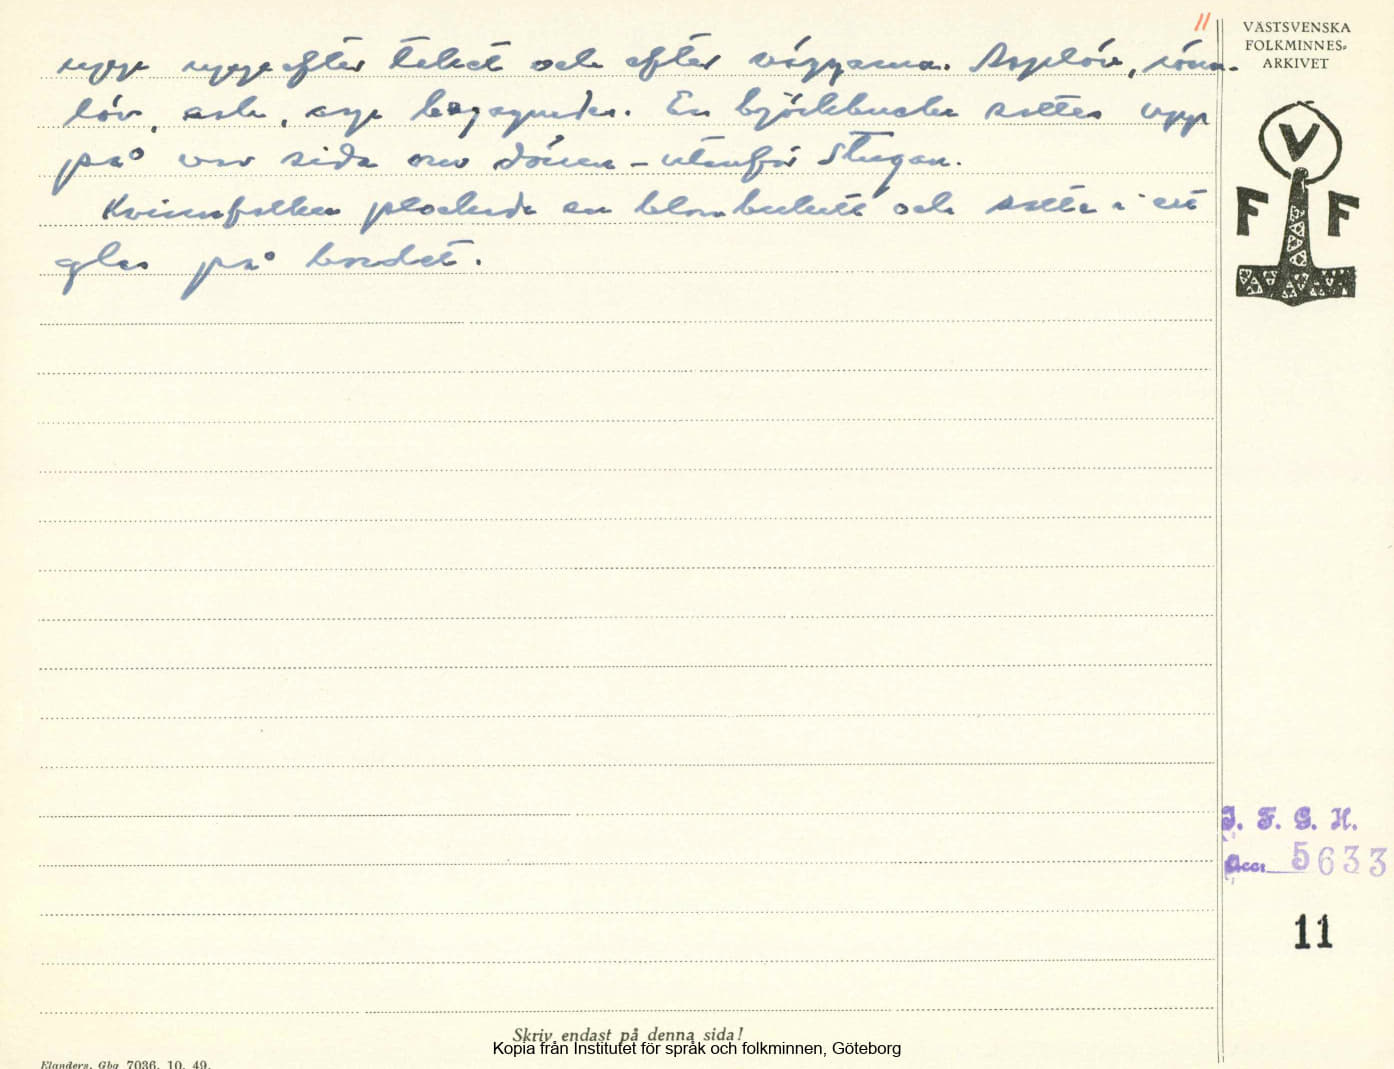 11
VÄSTSVENSKA
FOLKMINNES-
ARKIVET
V
F F
upp efter taket och efter väggarna. Asplöv, rönn-
löv, ask, asp begagnades. En björkbuske sattes upp
på var sida om dörren – utanför stugan.
Kvinnfolken plockade en blombukett och satte i ett
glas på bordet.
I. F. G. H.
Acc. 5633
11
Skriv endast på denna sida!
Kopia från Institutet för språk och folkminnen, Göteborg
Elanders, Gbg 7036. 10. 49.